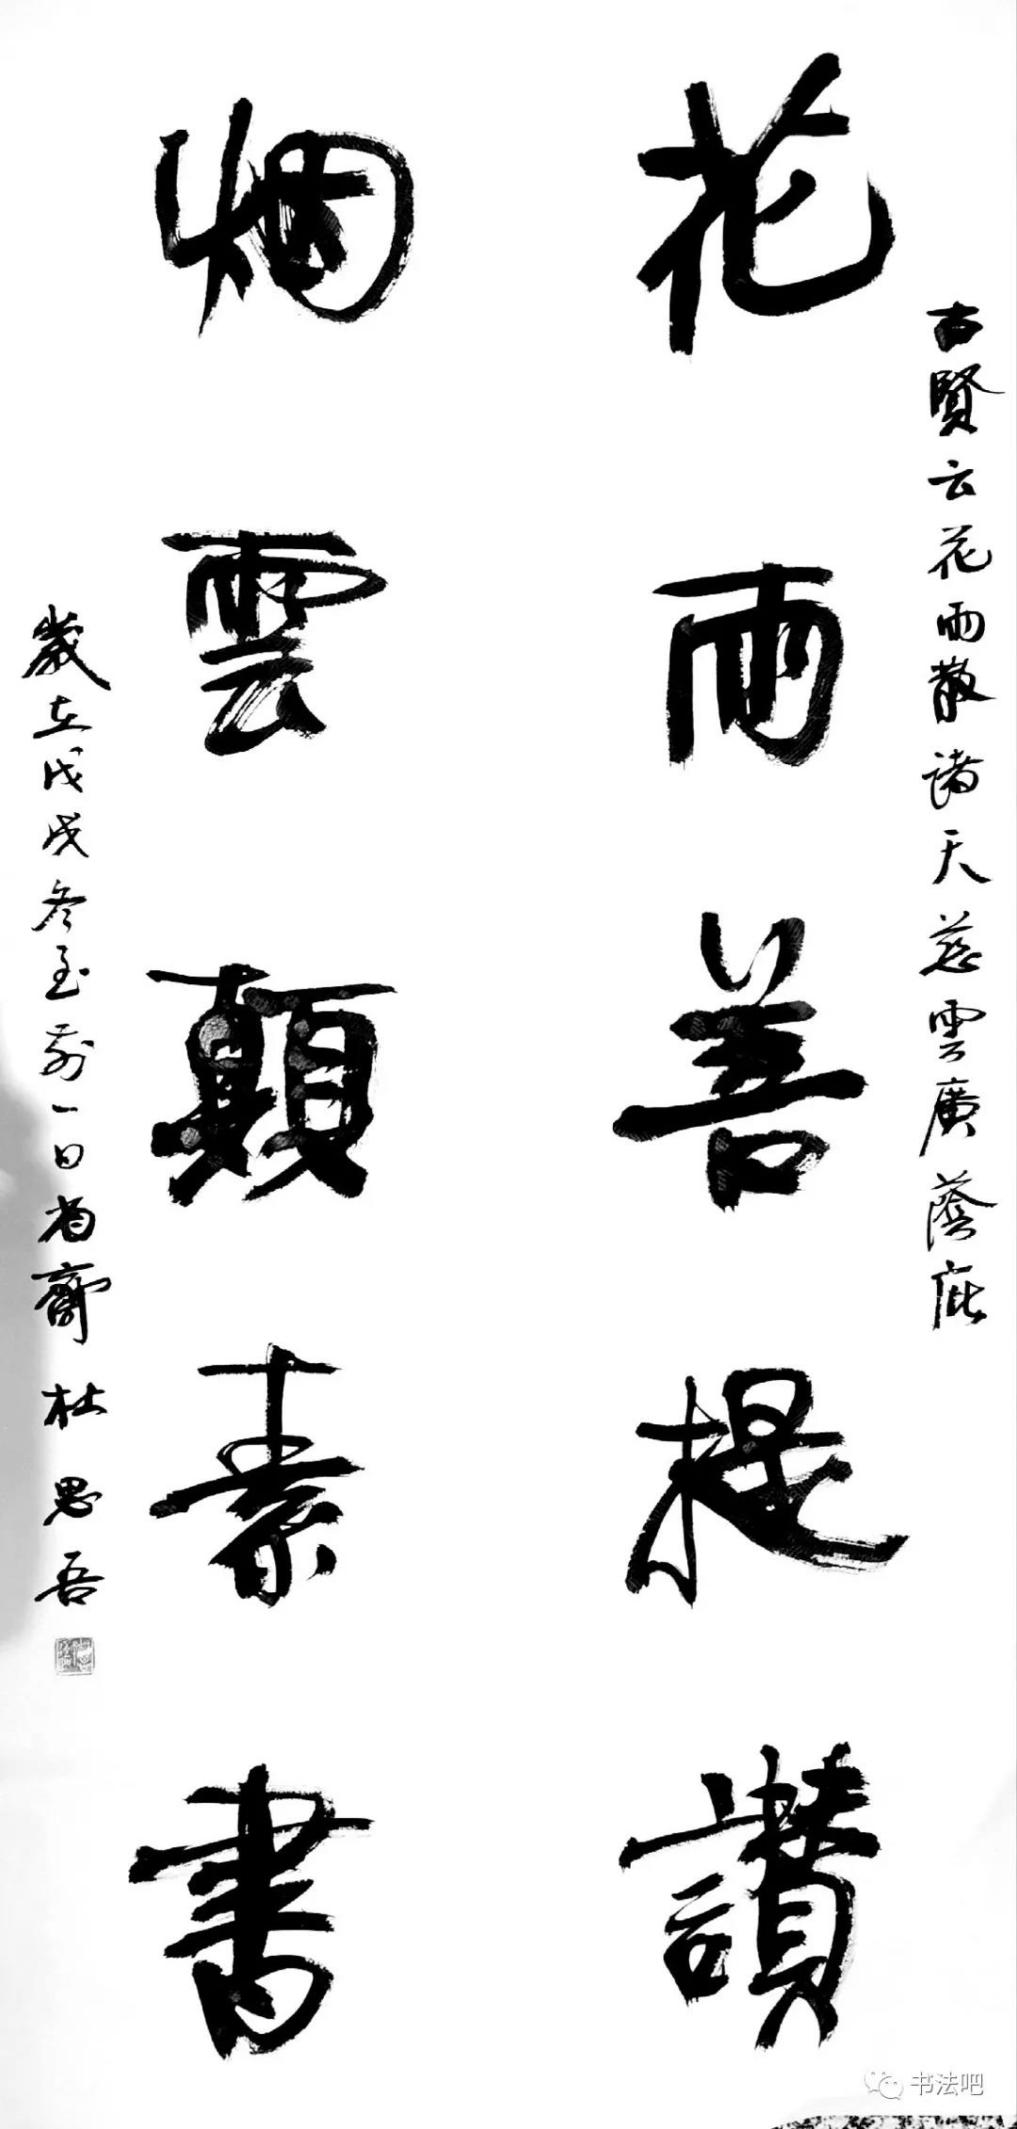 古賢云花雨散諸天慈雲廣蔭庇
花雨善提讃
烟雲顛素書
歲在戊戌冬至前一日省齋杜思吾
书法吧